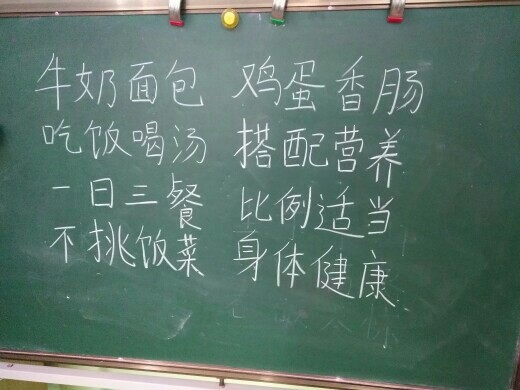 牛奶面包 鸡蛋香肠
吃饭喝汤 搭配营养
一日三餐 比例适当
不挑饭菜 身体健康